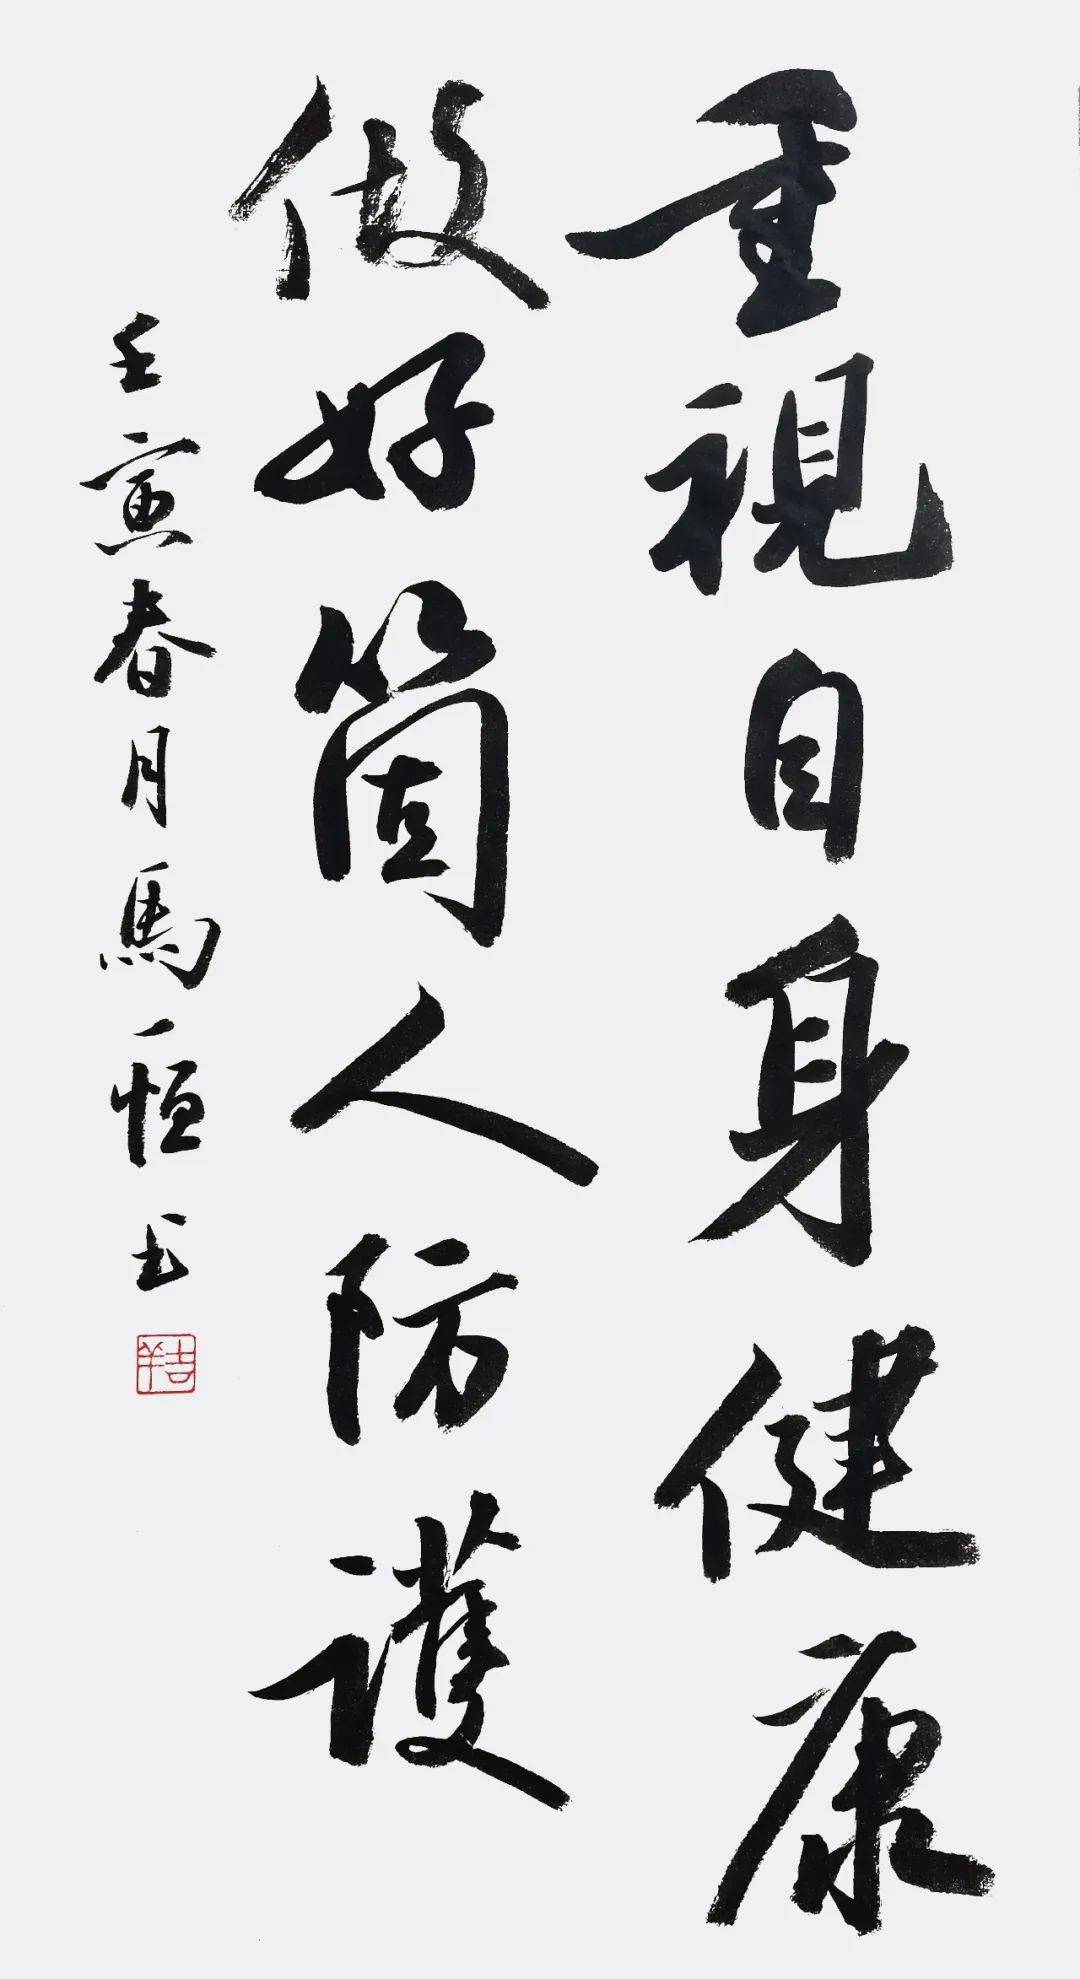 重視自身健康
做好箇人防護
壬寅春月馬恒书
吉羊